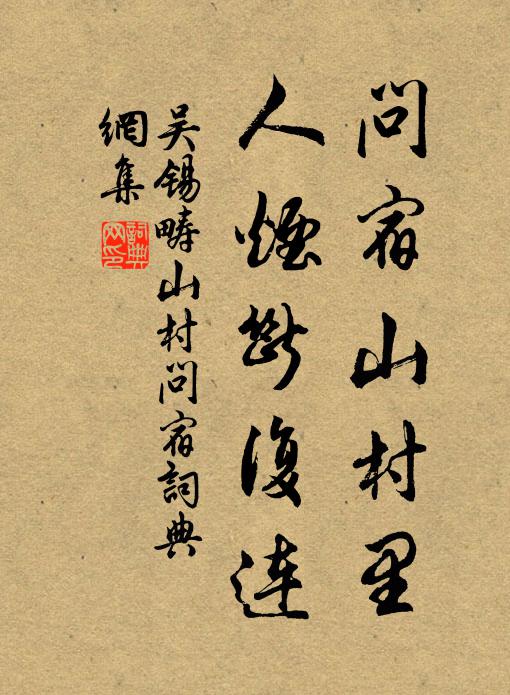 問宿山村里
人煙斷復連
吳錫疇山村問宿詞典
網集
詞典網印